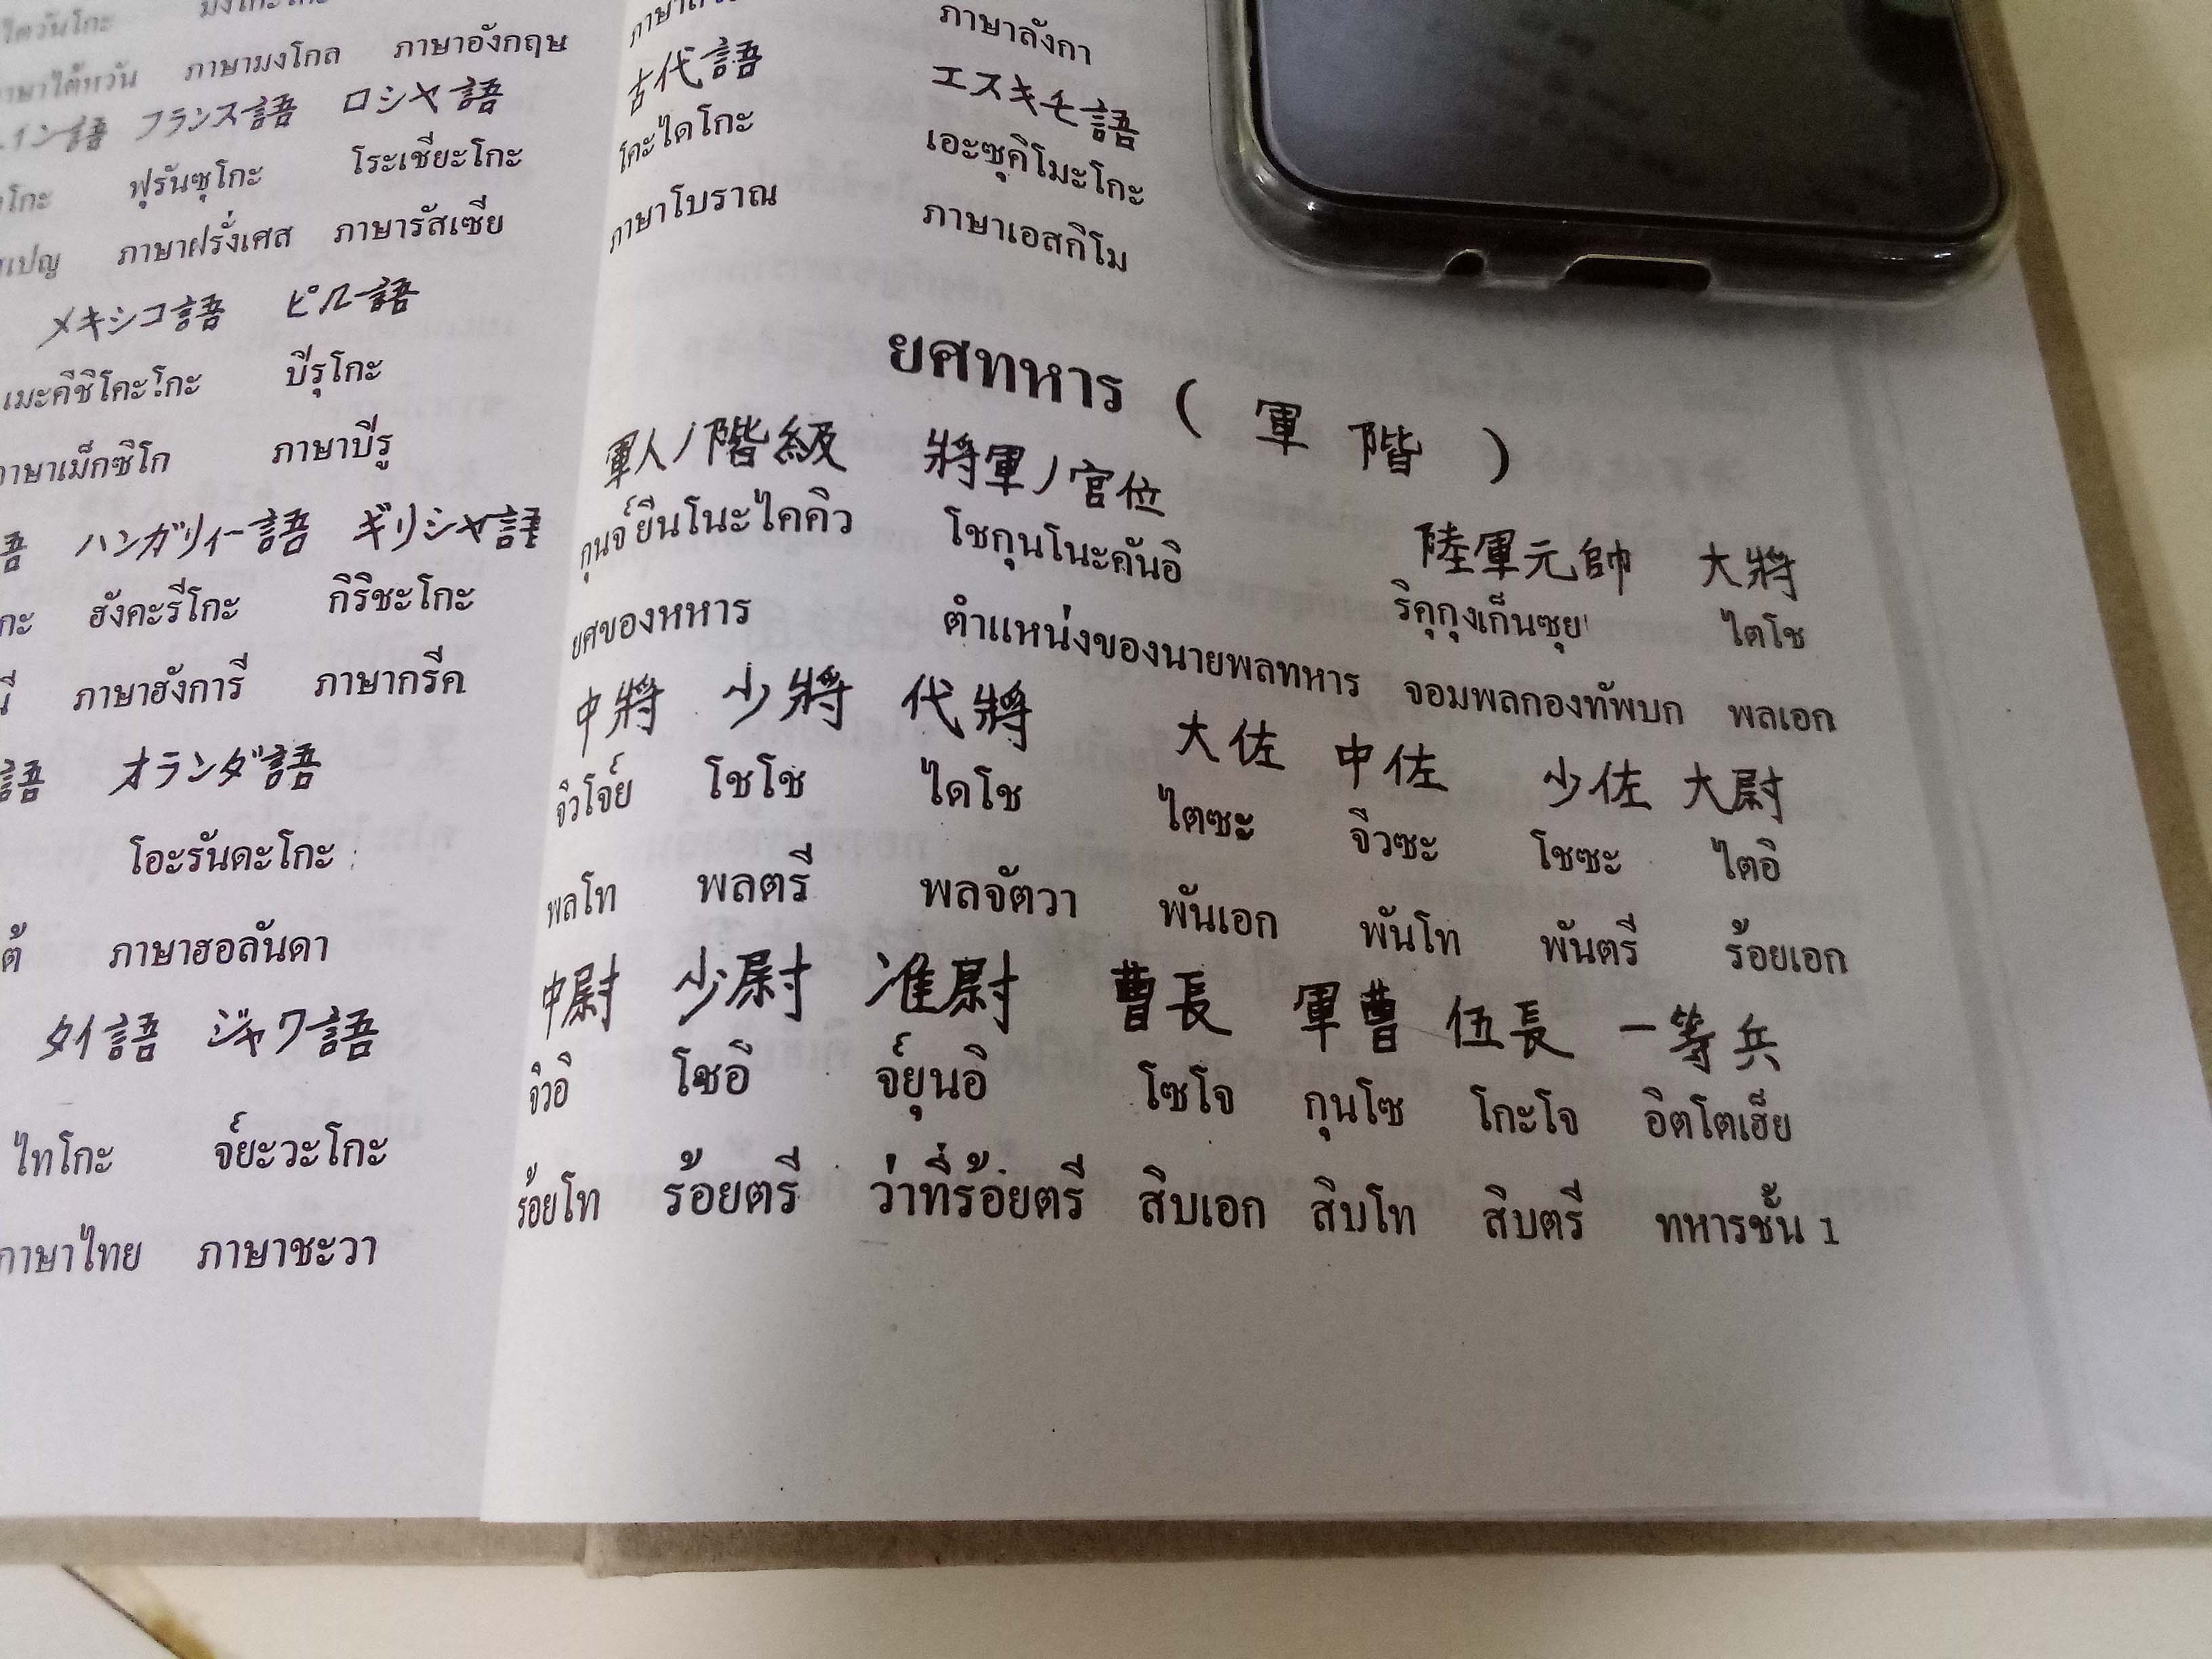 ไต้หวัน ภาษามงโกล ภาษาอังกฤษ
イン語 フランス語 ロシヤ語
โกะ ฟุรันซุโกะ โระเชียะโกะ
สเปญ ภาษาฝรั่งเศส ภาษารัสเซีย
メキシコ語 ピルー語
เมะคีชิโคะโกะ บีรุโกะ
ภาษาเม็กซิโก ภาษาบีรู
語 ハンガリィー語 ギリシヤ語
กะ ฮังคะรีโกะ กิริชะโกะ
ภาษาฮังการี ภาษากรีค
語 オランダ語
โอะรันดะโกะ
ต้ ภาษาฮอลันดา
タイ語 ジャワ語
ไทโกะ จ์ยะวะโกะ
ภาษาไทย ภาษาชะวา
ภาษาลังกา
古代語 エスキモ語
โคะไดโกะ เอะซุคิโมะโกะ
ภาษาโบราณ ภาษาเอสกิโม
ยศทหาร ( 軍 階 )
軍人ノ階級 將軍ノ官位 陸軍元帥 大將
กุนจ์ยีนโนะไคคิว โชกุนโนะคันอิ ริคุกุงเก็นซุย ไตโช
ยศของหหาร ตำแหน่งของนายพลทหาร จอมพลกองทัพบก พลเอก
中將 少將 代將 大佐 中佐 少佐 大尉
จิวโจ์ย โชโช ไดโช ไตซะ จีวซะ โชซะ ไตอิ
พลโท พลตรี พลจัตวา พันเอก พันโท พันตรี ร้อยเอก
中尉 少尉 准尉 曹長 軍曹 伍長 一等兵
จิวอิ โชอิ จ์ยุนอิ โซโจ กุนโซ โกะโจ อิตโตเฮ็ย
ร้อยโท ร้อยตรี ว่าที่ร้อยตรี สิบเอก สิบโท สิบตรี ทหารชั้น 1